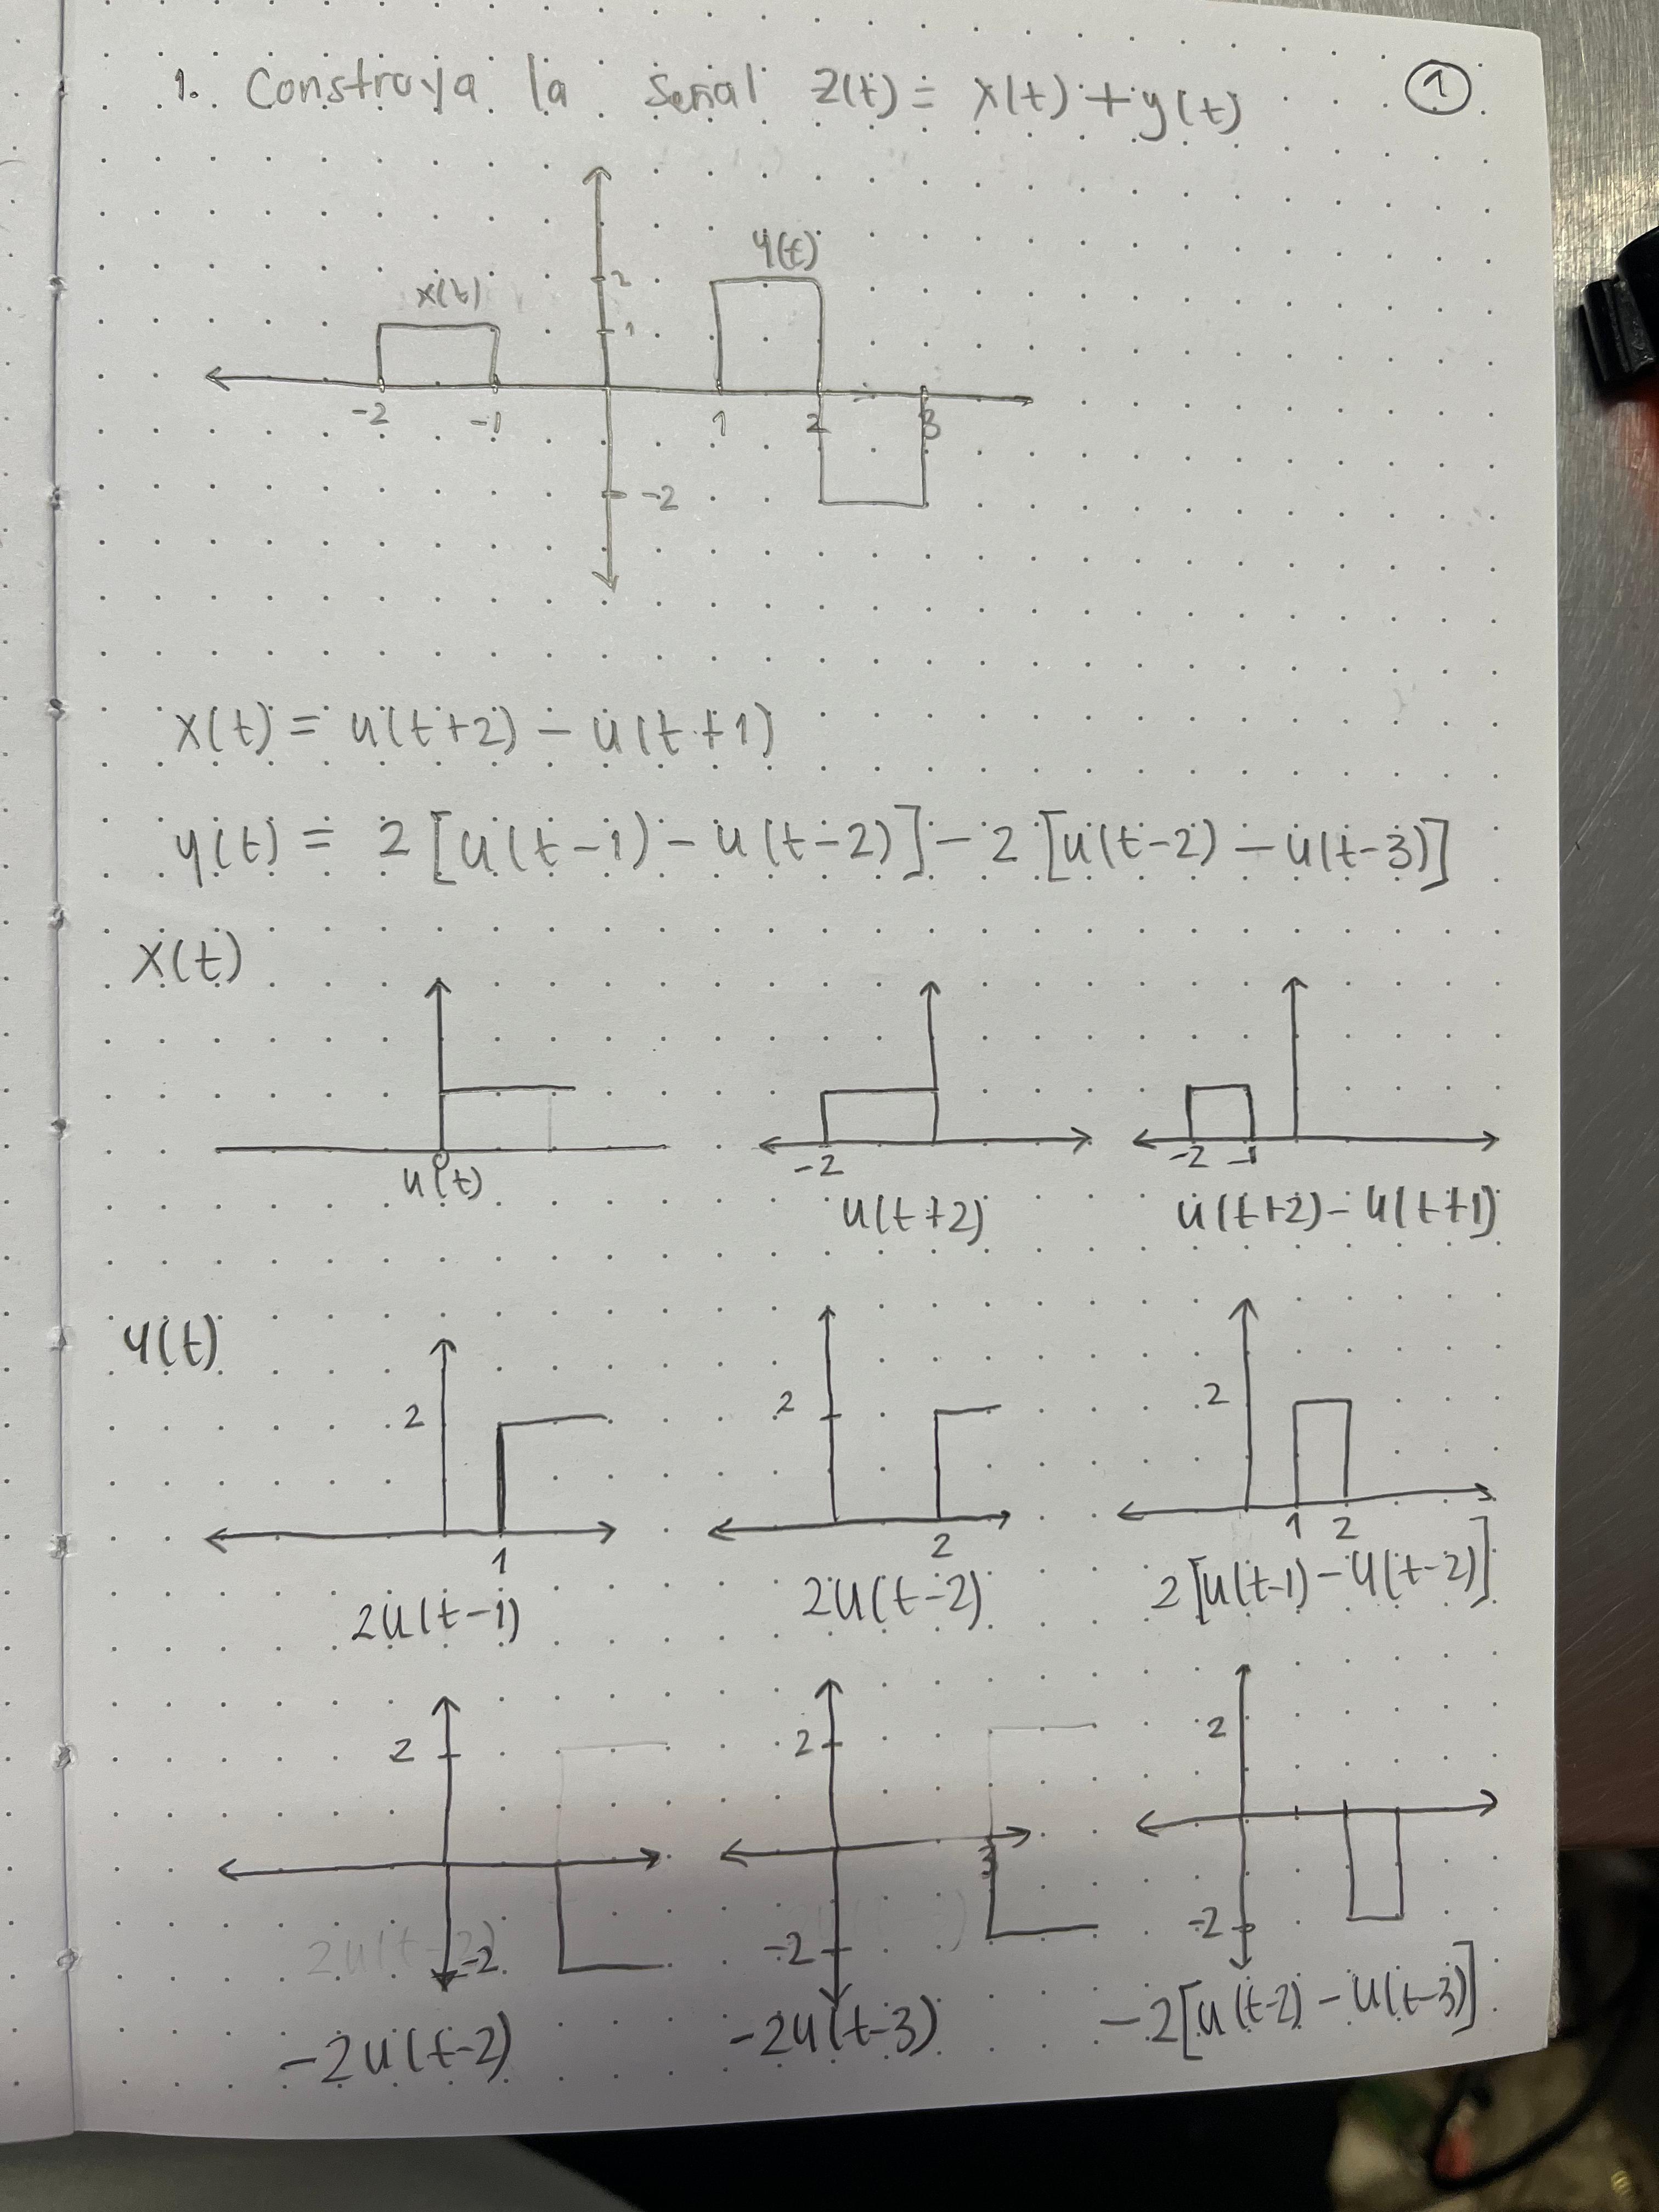 1. Construya la señal z(t) = x(t) + y(t) 1
y(t)
x(t) 2
1
-2 -1 1 2 3
-2
x(t) = u(t+2) - u(t+1)
y(t) = 2 [u(t-1) - u(t-2)] - 2 [u(t-2) - u(t-3)]
x(t)
-2 -2 -1
u(t) u(t+2) u(t+2) - u(t+1)
y(t)
2 2 2
1 2 1 2
2u(t-1) 2u(t-2) 2[u(t-1) - u(t-2)]
2 2 2
3
-2 -2 -2
-2u(t-2) -2u(t-3) -2[u(t-2) - u(t-3)]